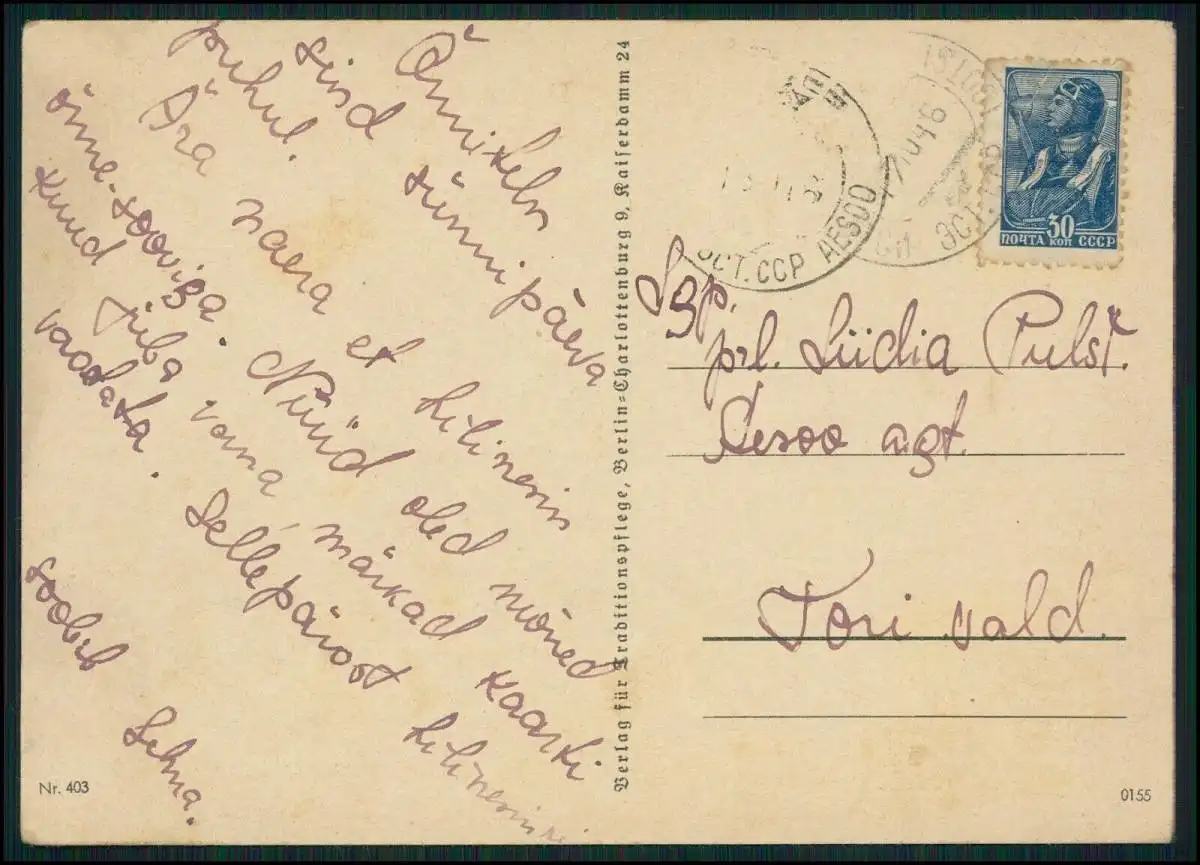 Õnniteln
sind sünnipäeva
puhul.
Ära naera et hilinesin
õnne-sooviga. Nüüd oled mõned
kuud juba vana, märkad kaarti
vaadata. Sellepärast hilinesin
soobib Selma.
Nr. 403
Verlag für Traditionspflege, Berlin-Charlottenburg 9, Kaiserdamm 24
ЭСТ. ССР AESOO
1046
ЭСТ.
30
ПОЧТА КОП СССР
Lgp.
prl. Liidia Pulst.
Aesoo agt.
Tori vald.
0155